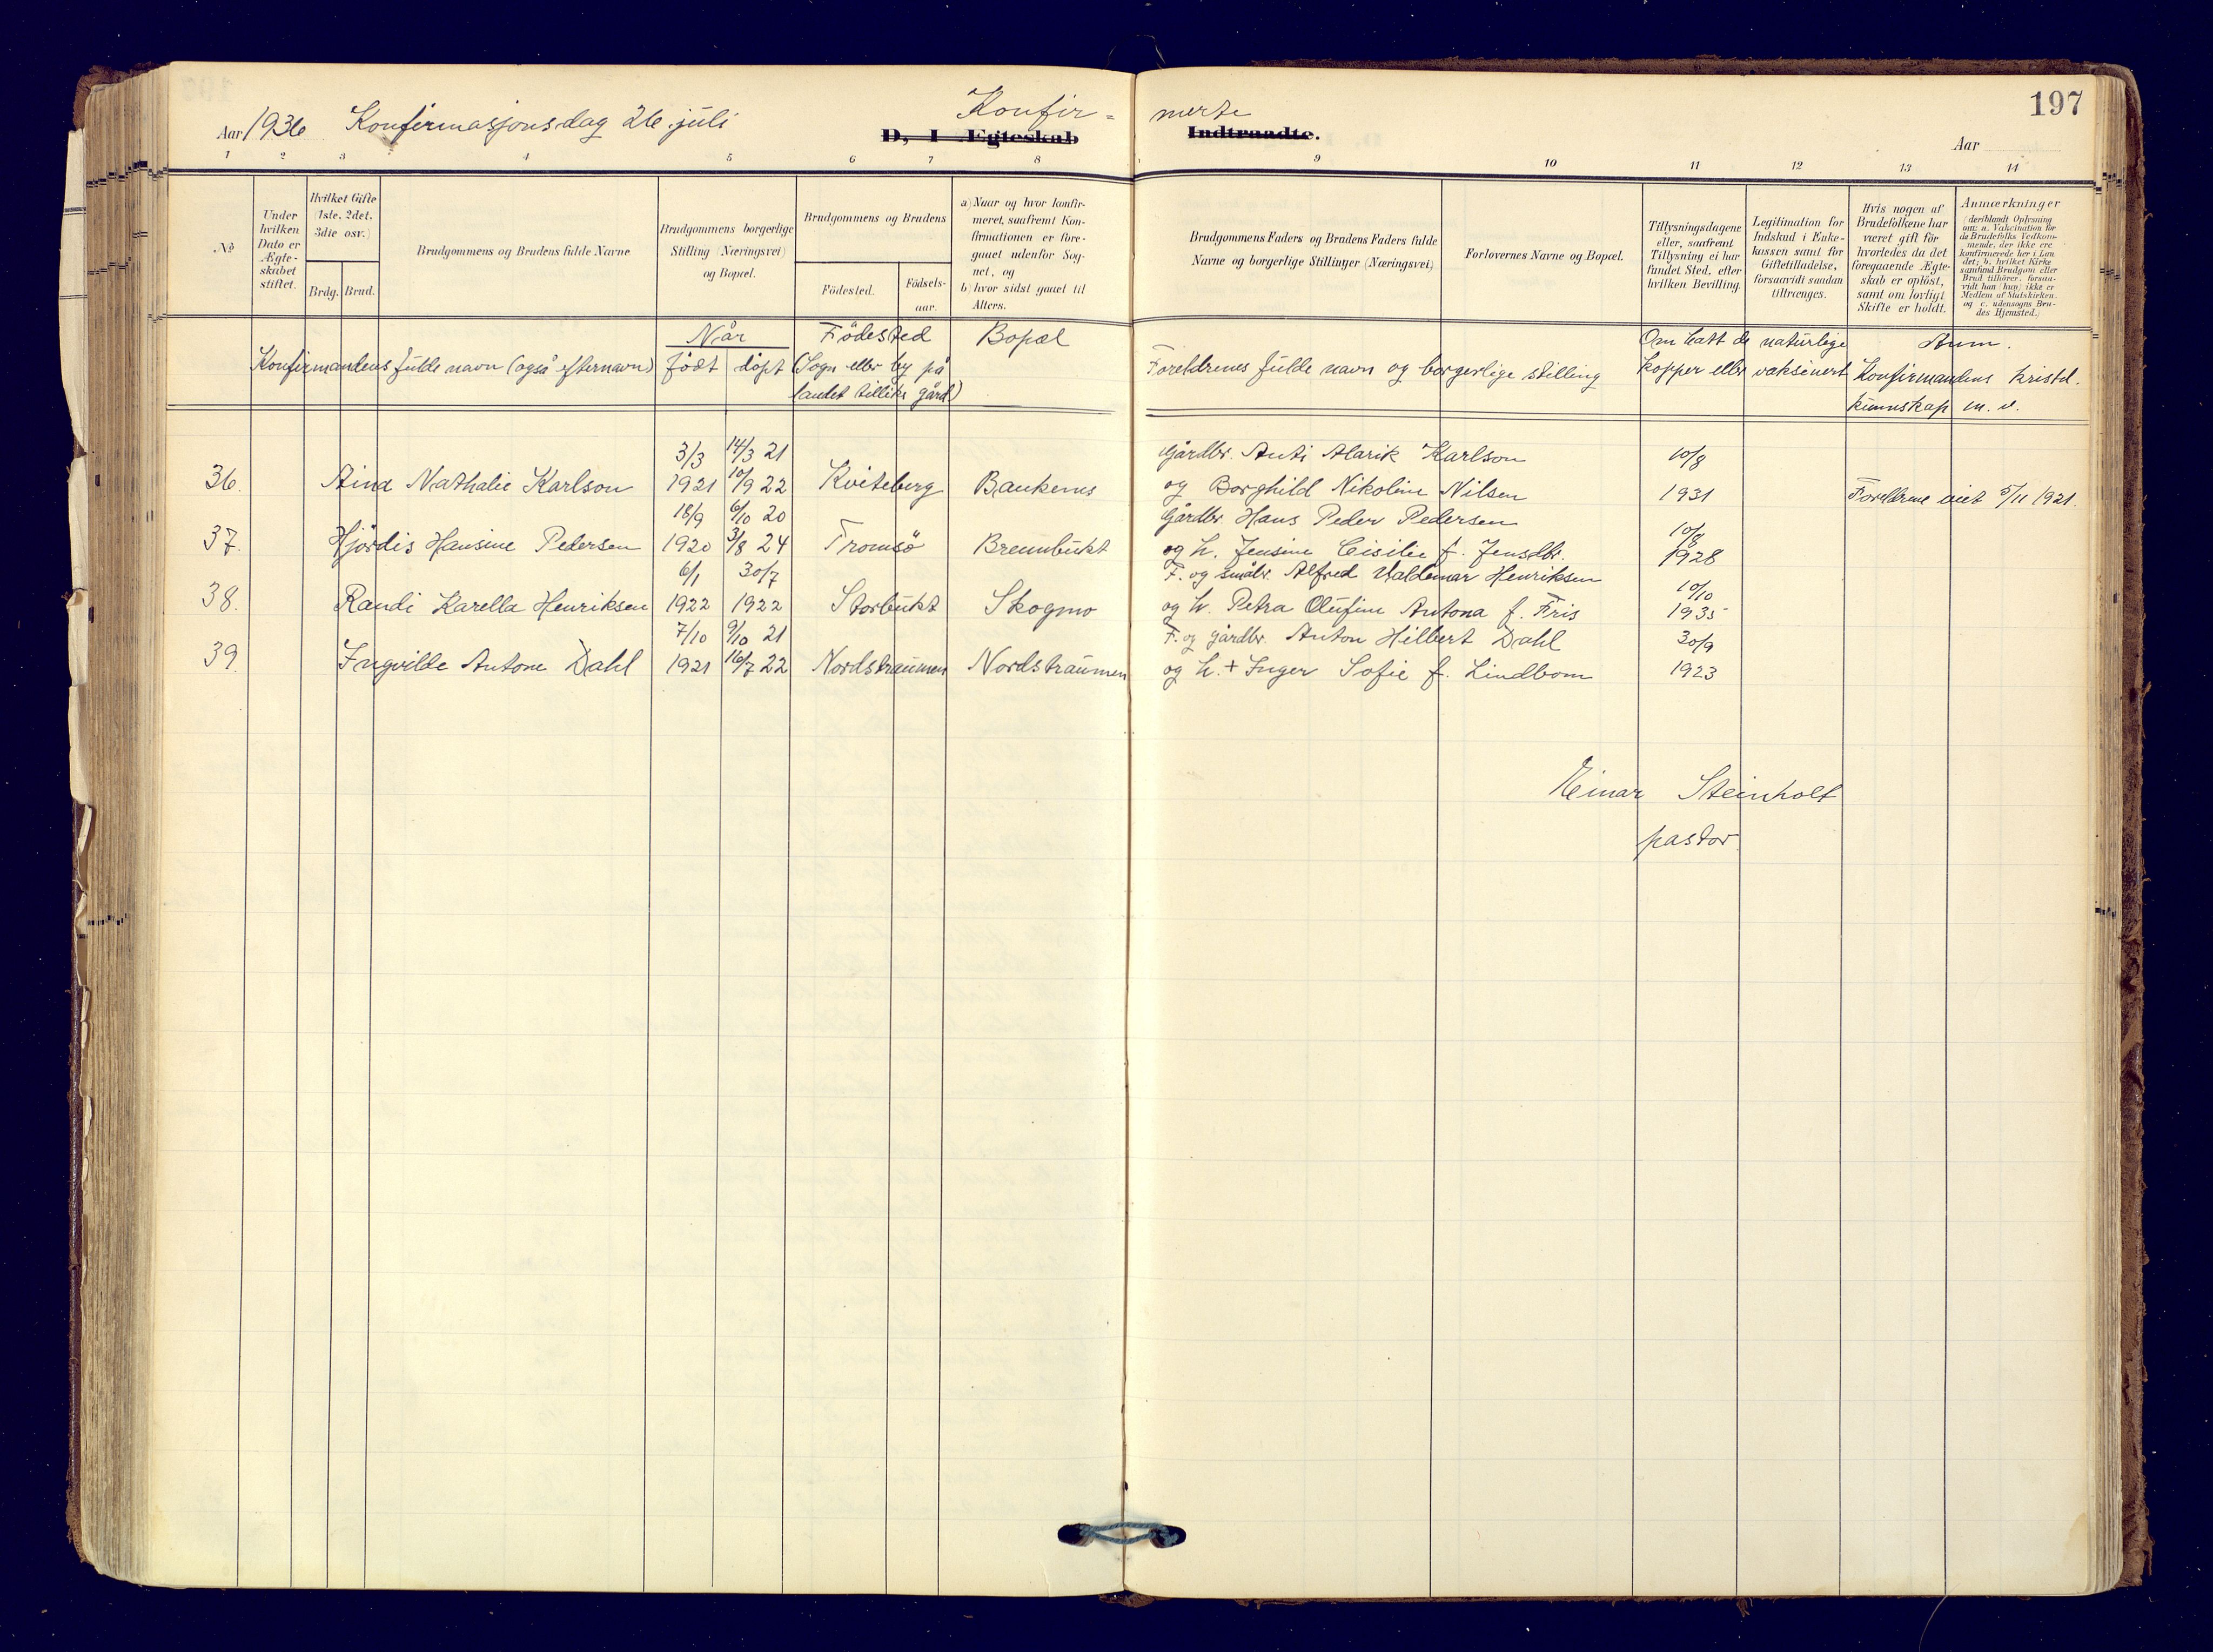 197
Aar 1936 Konfirmasjonsdag 26 juli
Konfir = merte
D, I Ægteskab Indtraadte.
Aar
1 2 3 4 5 6 7 8 9 10 11 12 13 14
No
Under hvilken Dato er Ægte-skabet stiftet.
Hvilket Gifte (1ste. 2det. 3die osv.)
Brdg. Brud.
Brudgommens og Brudens fulde Navne
Brudgommens borgerlige Stilling (Næringsvei) og Bopæl.
Brudgommens og Brudens
Födested.
Födsels-aar.
a) Naar og hvor konfir-meret, saafremt Kon-firmationen er fore-gaaet udenfor Sog-net, og
b) hvor sidst gaaet til Alters.
Brudgommens Faders og Brudens Faders fulde Navne og borgerlige Stillinger (Næringsvei)
Forlovernes Navne og Bopæl.
Tillysningsdagene eller, saafremt Tillysning ei har fundet Sted, efter hvilken Bevilling.
Legitimation for Indskud i Enke-kassen samt for Giftetilladelse, forsaavidt saadan tiltrænges.
Hvis nogen af Brudefolkene har været gift för hvorledes da det foregaaende Ægte-skab er oplöst, samt om lovligt Skifte er holdt.
Anmærkninger
(deriblandt Oplysning om: a. Vakcination for de Brudefolks Vedkom-mende, der ikke ere konfirmerede her i Lan-det; b. hvilket Kirke-samfund Brudgom eller Brud tilhörer, forsaa-vidt han (hun) ikke er Medlem af Statskirken, og c. udensogns Bru-des Hjemsted.)
Når Födested Bopæl Om hatt de naturlige Anm.
Konfirmandens fulde navn (også efternavn) födt döpt (Sogn eller by på Foreldrenes fulde navn og borgerlige stilling kopper eller vaksinert Konfirmandens kristd.
landet tillike gård) kunnskap m. v.
3/3 14/3 21 Gårdbr. Anti Alarik Karlson 10/8
36. Aina Nathalie Karlson 1921 10/9 22 Kviteberg Baukenes og Borghild Nikoline Nilsen 1931 Foreldrene viet 5/11 1921.
18/9 6/10 20 Gårdbr. Hans Peder Pedersen 10/8
37. Hjördis Hansine Pedersen 1920 3/8 24 Tromsö Brennbukt og h. Jensine Cisilie f. Jensdtr. 1928
6/1 30/7 F. og småbr. Alfred Valdemar Henriksen 10/10
38. Randi Karella Henriksen 1922 1922 Storbukt Skogmo og h. Petra Olufine Antona f. Fris 1935
7/10 9/10 21 F. og gårdbr. Anton Hilbert Dahl 30/9
39. Ingvilde Antone Dahl 1921 16/7 22 Nordstraumen Nordstraumen og h. + Inger Sofie f. Lindbom 1923
Einar Steinholt
pastor